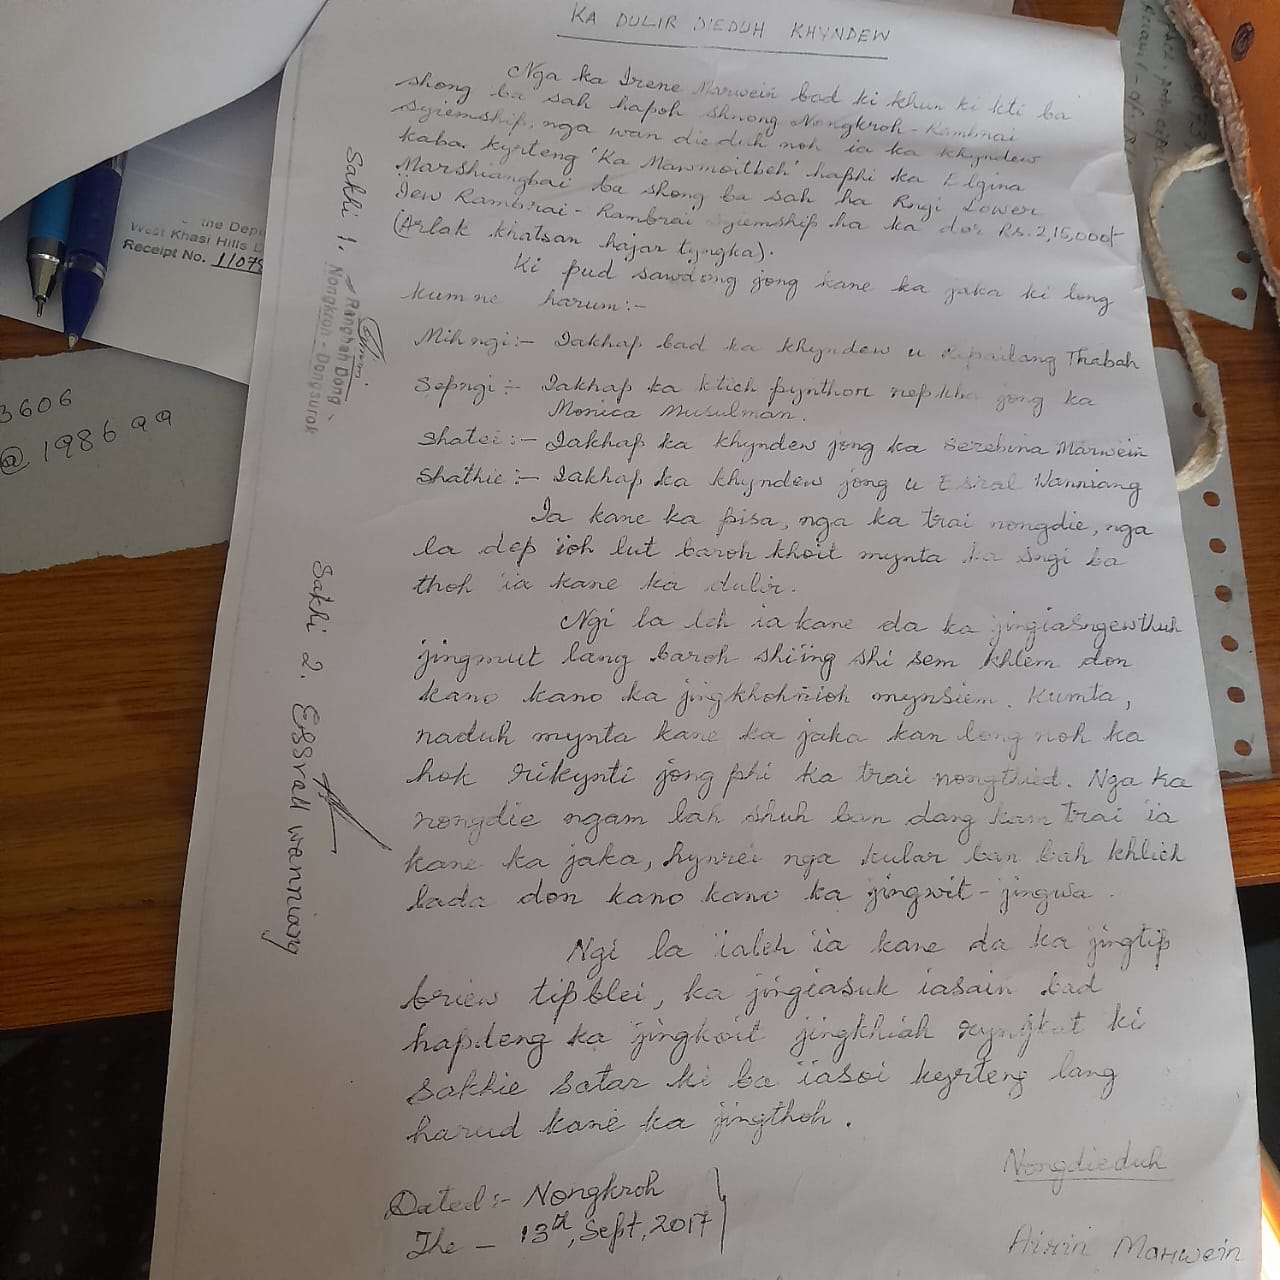 KA DULIR DIEDUH KHYNDEW
Nga ka Irene Marwein bad ki khun ki kti ba
shong ba sah hapoh shnong Nongkroh - Rambrai
Syiemship, nga wan die duh noh ia ka khyndew
kaba kyrteng 'Ka Mawmoitbeh' haphi ka Elgina
Marshiangbai ba shong ba sah ha Rngi Lower
Iew Rambrai - Rambrai Syiemship ha ka dor Rs. 2,15,000/-
(Arlak khatsan hajar tyngka).
Ki pud sawdong jong kane ka jaka ki long
kumne harum:-
Mihngi:- Iakhap bad ka khyndew u Thabah
Sepngi:- Iakhap ka ktieh pynthor jong ka
Monica Musulman.
Shatei:- Iakhap ka khyndew jong ka Serebina Marwein
Shathie:- Iakhap ka khyndew jong u Esral Wanniang
Ia kane ka pisa, nga ka trai nongdie, nga
la dep ïoh lut baroh khoit mynta ka sngi ba
thoh ïa kane ka dulir.
Ngi la leh ia kane da ka jingiasngewthuh
jingmut lang baroh shiïing shi sem khlem don
kano kano ka jingkhohñioh mynsiem. Kumta,
naduh mynta kane ka jaka kan long noh ka
hok rikynti jong phi ka trai nongthied. Nga ka
nongdie ngam lah shuh ban dang kam trai ia
kane ka jaka, hynrei nga kular ban bah khlieh
lada don kano kano ka jingwit-jingwa.
Ngi la ïaleh ïa kane da ka jingtip
briew tipblei, ka jingiasuk iasain bad
hapdeng ka jingkoit jingkhiah ryngkat ki
sakhie satar ki ba ïasoi kyrteng lang
harud kane ka jingthoh.
Dated:- Nongkroh
The - 13th, Sept, 2017
Nongdieduh
Airin Marwein
Sakhi 1.
Rangbah Dong
Nongkroh - Dongsurok
Sakhi 2. Essrall wanniang
the Dep
West Khasi Hills
Receipt No. 11079
3606
@ 198699